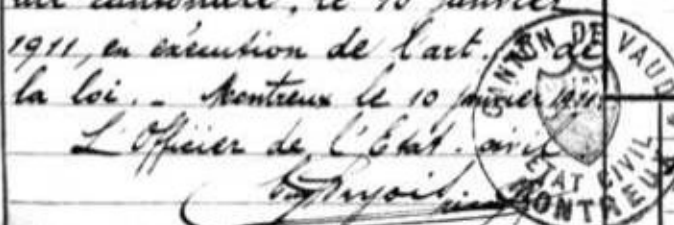 cantonale, le 10 janvier
1911, en exécution de l'art. de
la loi. - Montreux le 10 janvier 1911.
L'Officier de l'Etat-civil
CANTON DE VAUD
ETAT CIVIL
MONTREUX